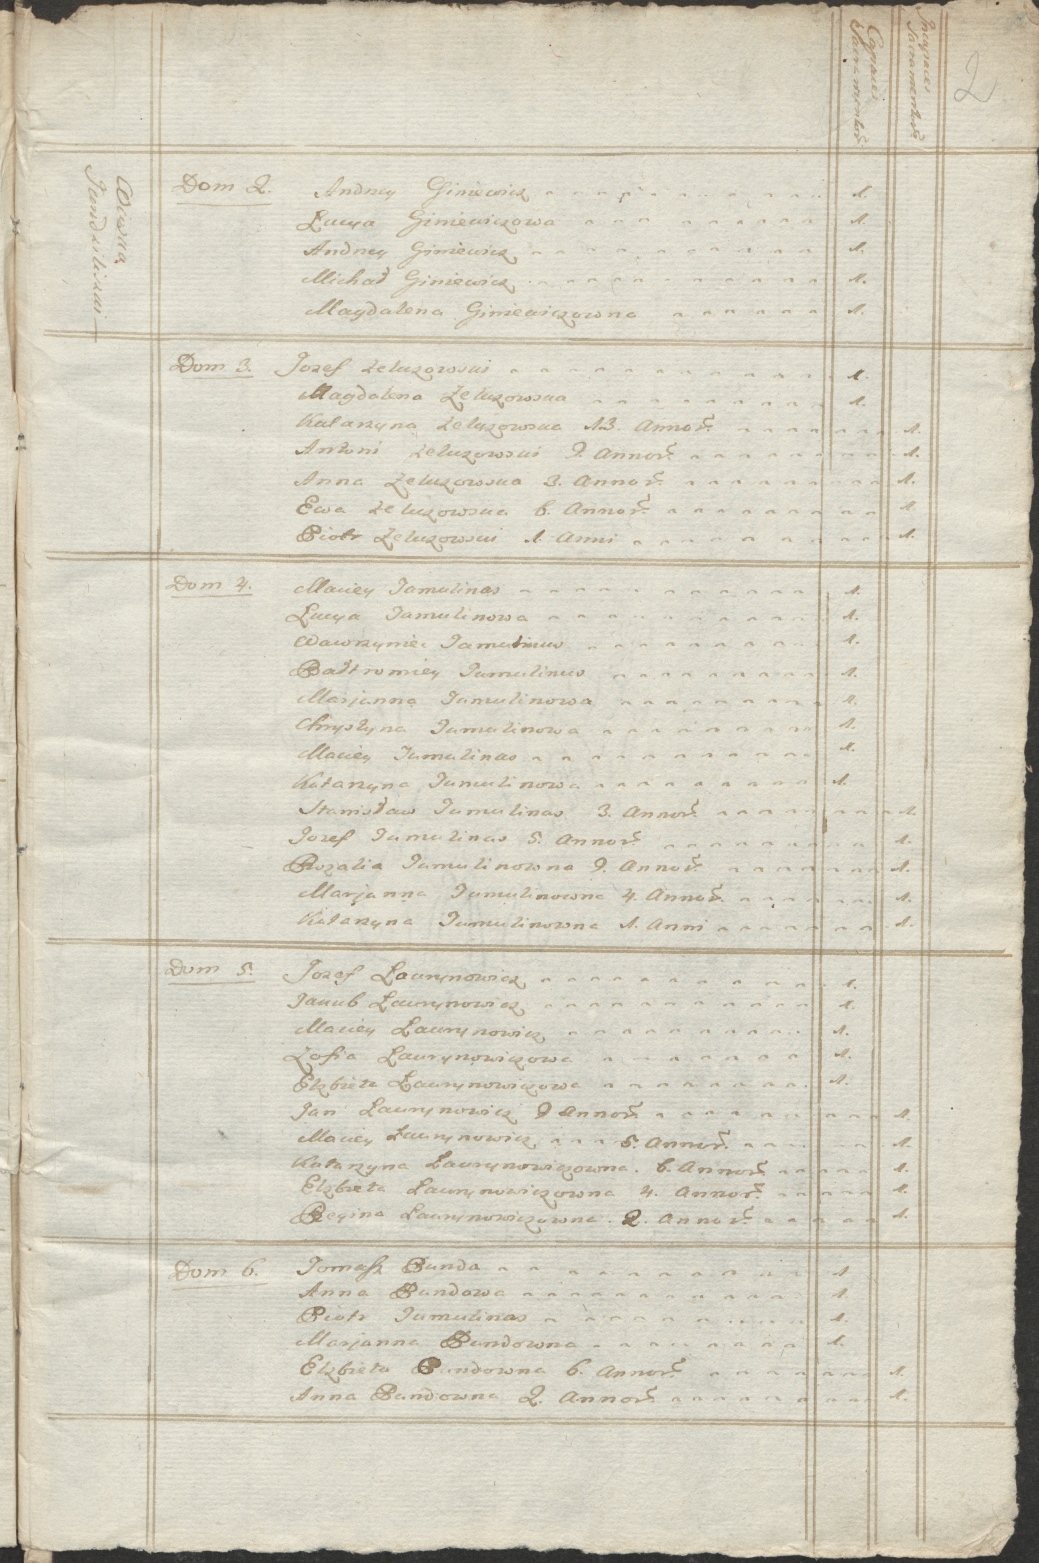 Capaces Sacramentor̃
Incapaces Sacramentor̃
2
Dom 2. Andrzey Giniewicz 1.
Łucya Giniewiczowa 1.
Andrzey Giniewicz 1.
Michał Giniewicz 1.
Magdalena Giniewiczowna 1.
Dom 3. Jozef Żeluzowski 1.
Magdalena Żeluzowska 1.
Katarzyna Żeluzowska 13. Annor̃ 1.
Antoni Żeluzowski 9. Annor̃ 1.
Anna Żeluzowska 3. Annor̃ 1.
Ewa Żeluzowska 6. Annor̃ 1.
Piotr Żeluzowski 1. Anni 1.
Dom 4. Maciey Jamulinas 1.
Łucya Jamulinowa 1.
Wawrzyniec Jamulinas 1.
Bałtromiey Jamulinas 1.
Marjanna Jamulinowa 1.
Chrystyna Jamulinowa 1.
Maciey Jamulinas 1.
Katarzyna Jamulinowa 1.
Stanisław Jamulinas 3. Annor̃ 1.
Jozef Jamulinas 5. Annor̃ 1.
Rozalia Jamulinowna 9. Annor̃ 1.
Marjanna Jamulinowna 4. Annor̃ 1.
Katarzyna Jamulinowna 1. Anni 1.
Dom 5. Jozef Ławrynowicz 1.
Jakub Ławrynowicz 1.
Maciey Ławrynowicz 1.
Zofia Ławrynowiczowa 1.
Elzbieta Ławrynowiczowa 1.
Jan Ławrynowicz 9 Annor̃ 1.
Maciey Ławrynowicz 5. Annor̃ 1.
Katarzyna Ławrynowiczowna. 6. Annor̃ 1.
Elzbieta Ławrynowiczowna 4. Annor̃ 1.
Regina Ławrynowiczowna. 2. Annor̃ 1.
Dom 6. Tomasz Bunda 1
Anna Bundowa 1.
Piotr Jamulinas 1.
Marjanna Bundowna 1.
Elzbieta Bundowna 6. Annor̃ 1.
Anna Bundowna 2. Annor̃ 1.